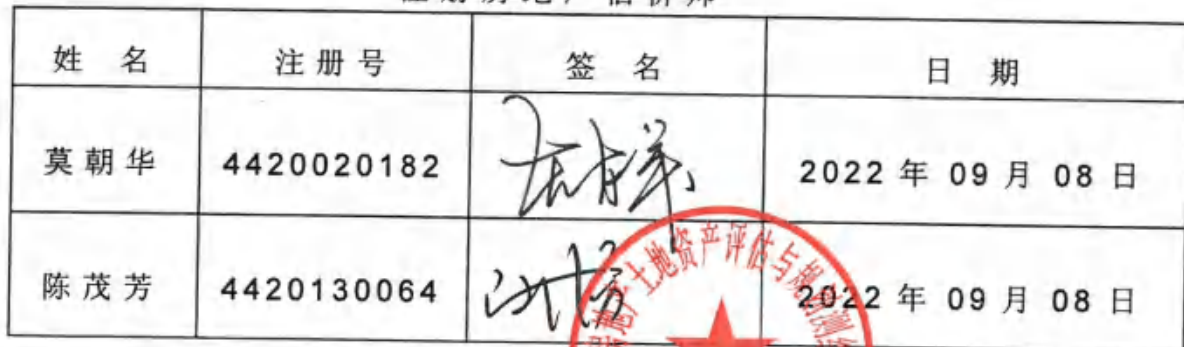 注册房地产估价师
姓 名 注册号 签 名 日 期
莫朝华 4420020182 2022 年 09 月 08 日
陈茂芳 4420130064 2022 年 09 月 08 日
土地资产评估与规划测绘